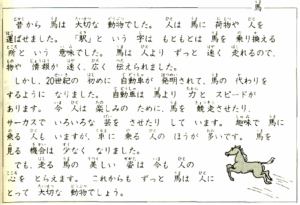 馬
昔から 馬は 大切な 動物でした。 人は 馬に 荷物や 人を
運ばせました。「駅」と いう 字は もともとは 馬を 乗り換える
所と いう 意味でした。 馬は 人より ずっと 速く 走れるので、
物や 情報が 速く、広く 伝えられました。
しかし、20世紀の 初めに 自動車が 発明されて、馬の 代わりを
するように なりました。 自動車は 馬より 力と スピードが
あります。 今 人は 楽しみの ために、馬を 競走させたり、
サーカスで いろいろな 芸を させたり して います。 趣味で 馬に
乗る 人も いますが、車に 乗る 人の ほうが 多いです。 馬を
見る 機会は 少なく なりました。
でも、走る 馬の 美しい 姿は 今も 人の
心を とらえます。 これからも ずっと 馬は 人に
とって 大切な 動物でしょう。